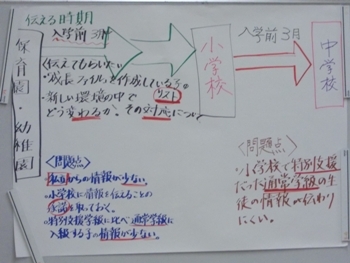 伝える時期
入学前 3月
保育園・幼稚園
小学校
入学前 3月
中学校
伝えてもらいたい
・成長ファイルを作成している子。
リスト
・新しい環境の中で
どう変わるか。その対応につい
〈問題点〉
・私立からの情報が少ない。
・小学校に情報を伝えることの
を取っておく。
・特別支援学級に比べ通常学級に
入級する子の情報が少ない。
〈問題点〉
・小学校で特別支援
だった通常学級の生
徒の情報が伝わり
にくい。